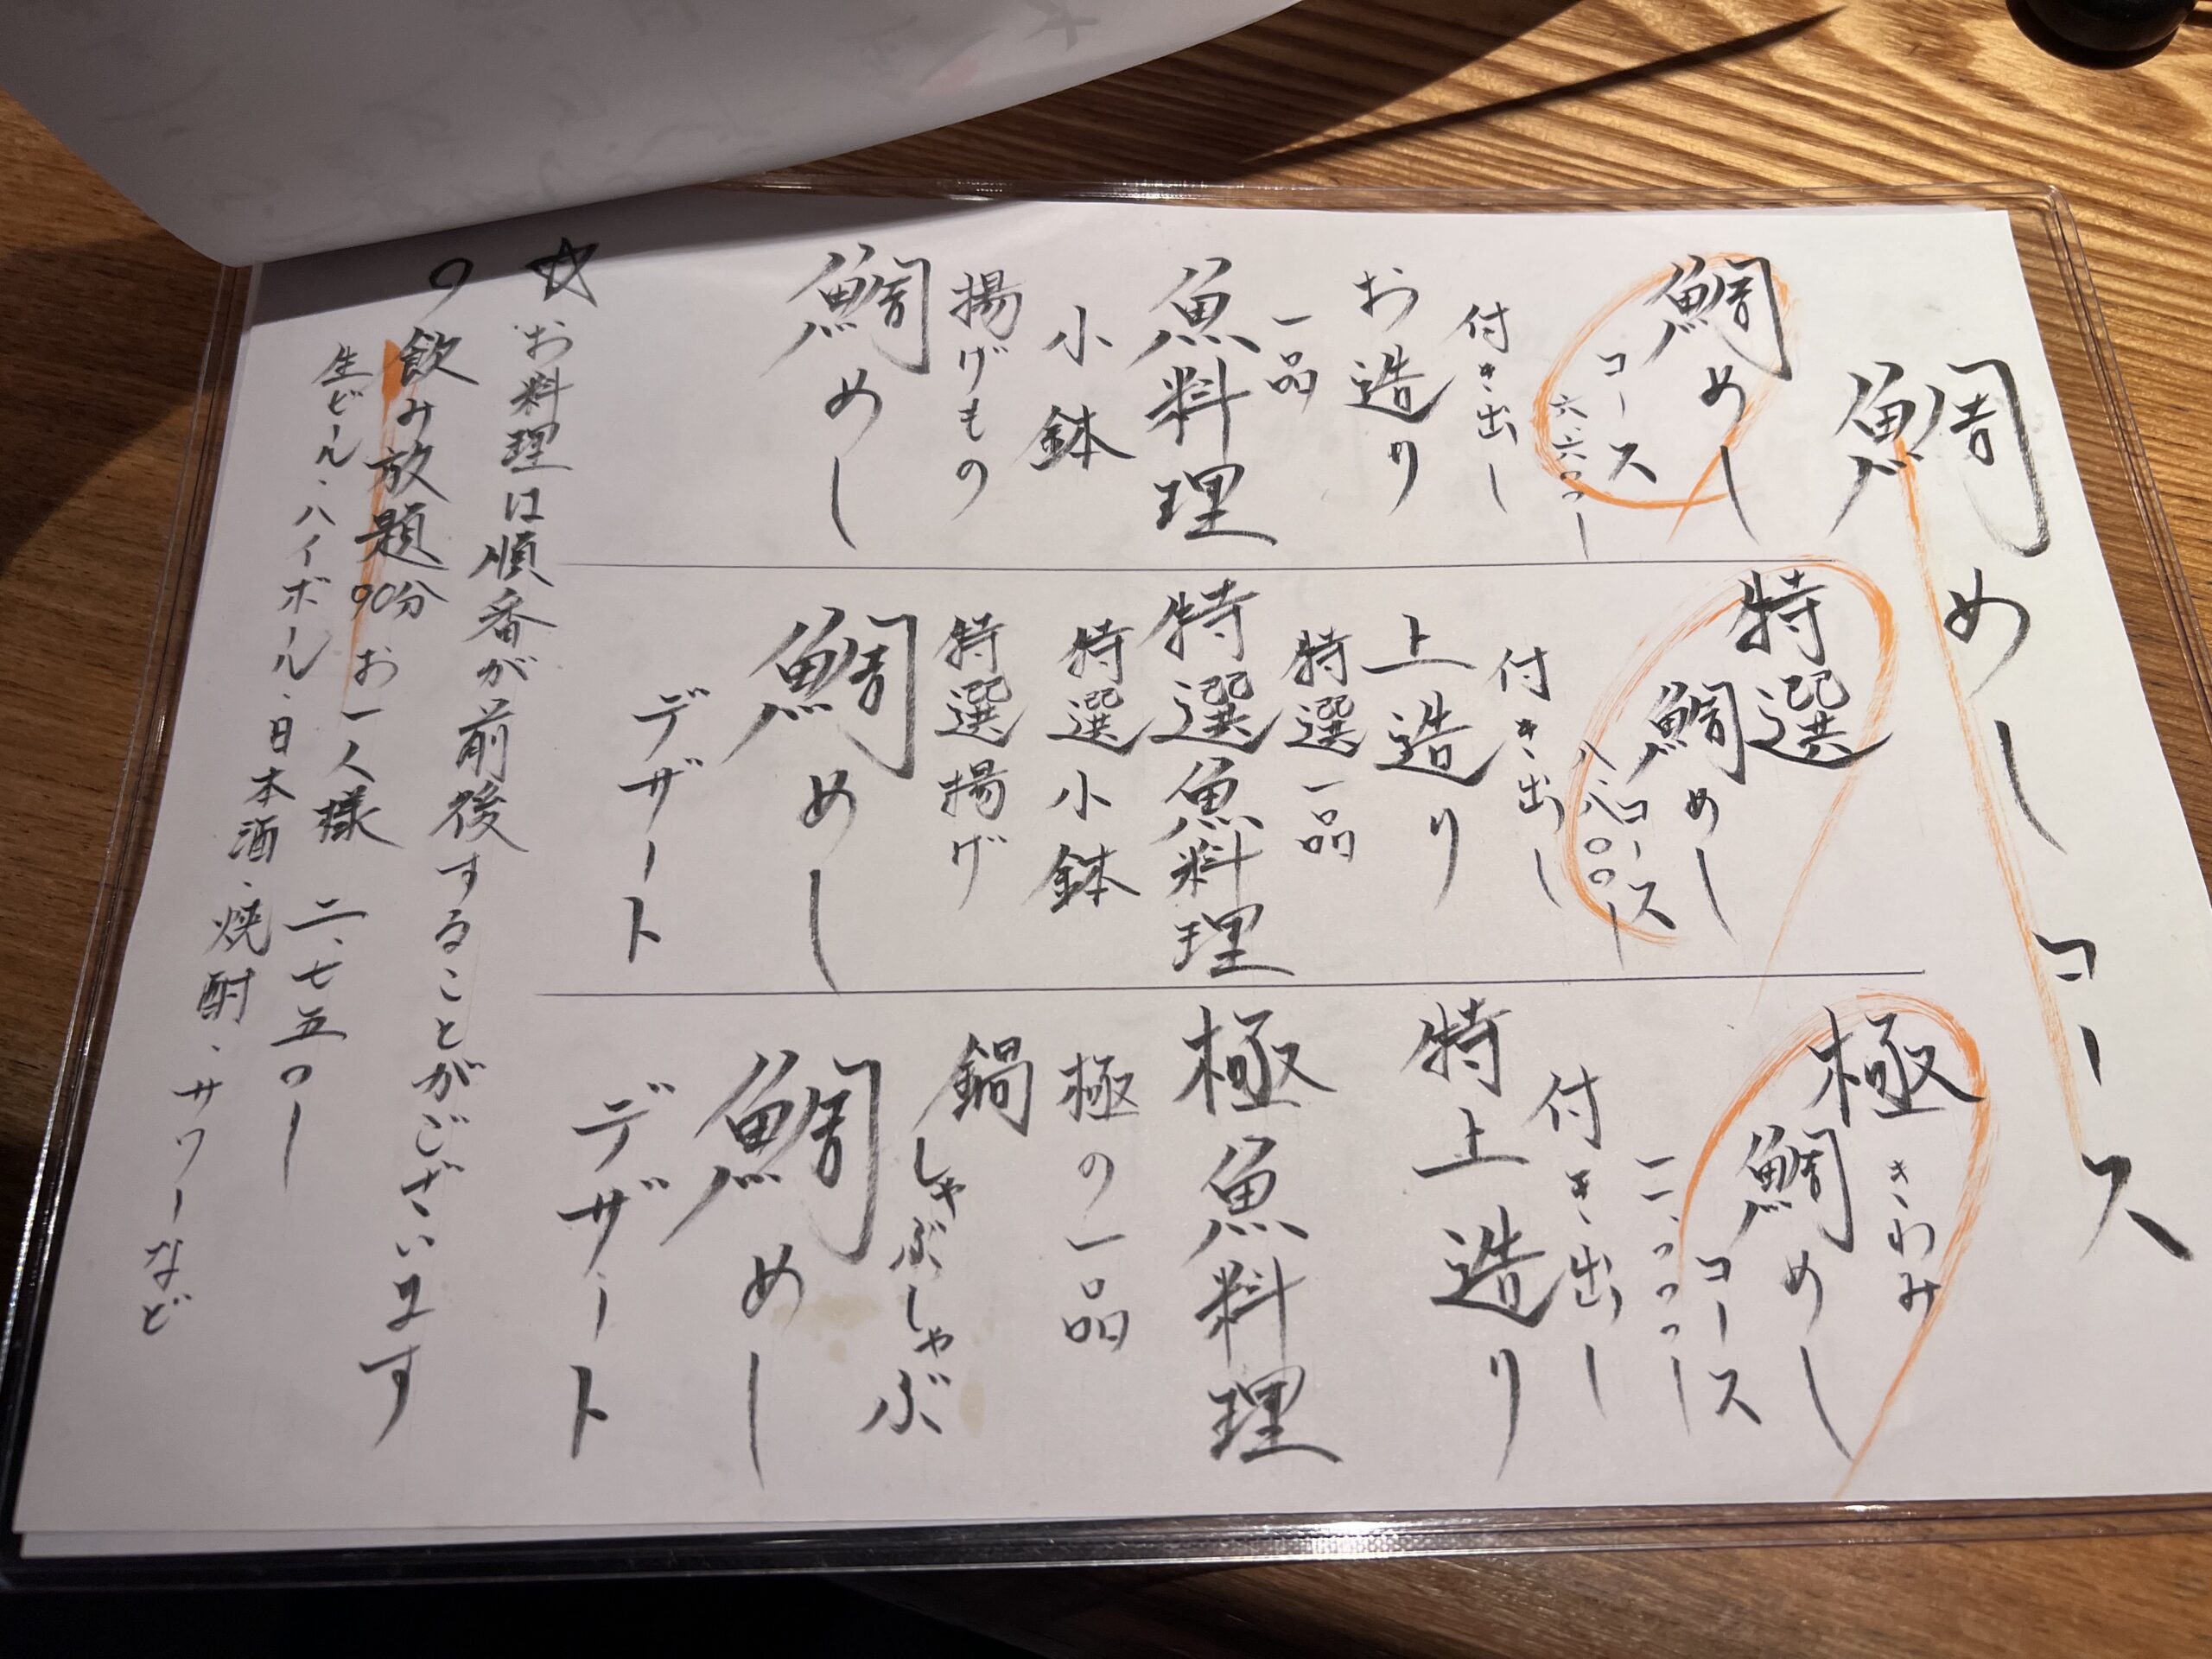 鯛めしコース
鯛めし
コース
六、六〇〇ー
付き出し
お造り
一品
魚料理
小鉢
揚げもの
鯛めし
特選
鯛めし
コース
八、八〇〇ー
付き出し
上造り
特選一品
特選魚料理
特選小鉢
特選揚げ
鯛めし
デザート
極 きわみ
鯛めし
コース
一一、〇〇〇ー
付き出し
特上造り
極魚料理
極の一品
鍋しゃぶしゃぶ
鯛めし
デザート
☆お料理は順番が前後することがございます
○飲み放題 90分 お一人様 二、七五〇ー
生ビール・ハイボール・日本酒・焼酎・サワーなど